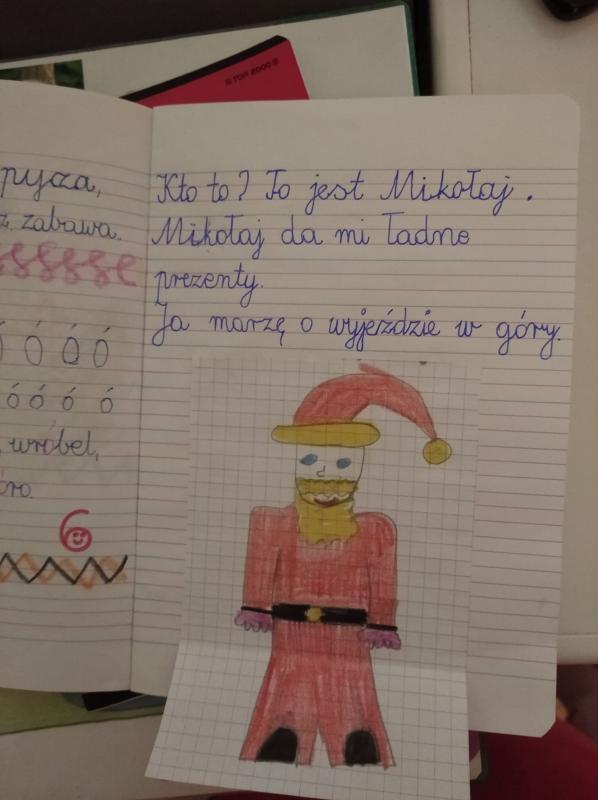 TOP 2000
pycza,
z zabawa.
Ó Ó Ó
ó ó ó ó
wróbel,
6
Kto to? To jest Mikołaj.
Mikołaj da mi ładne
prezenty.
Ja marzę o wyjeździe w góry.